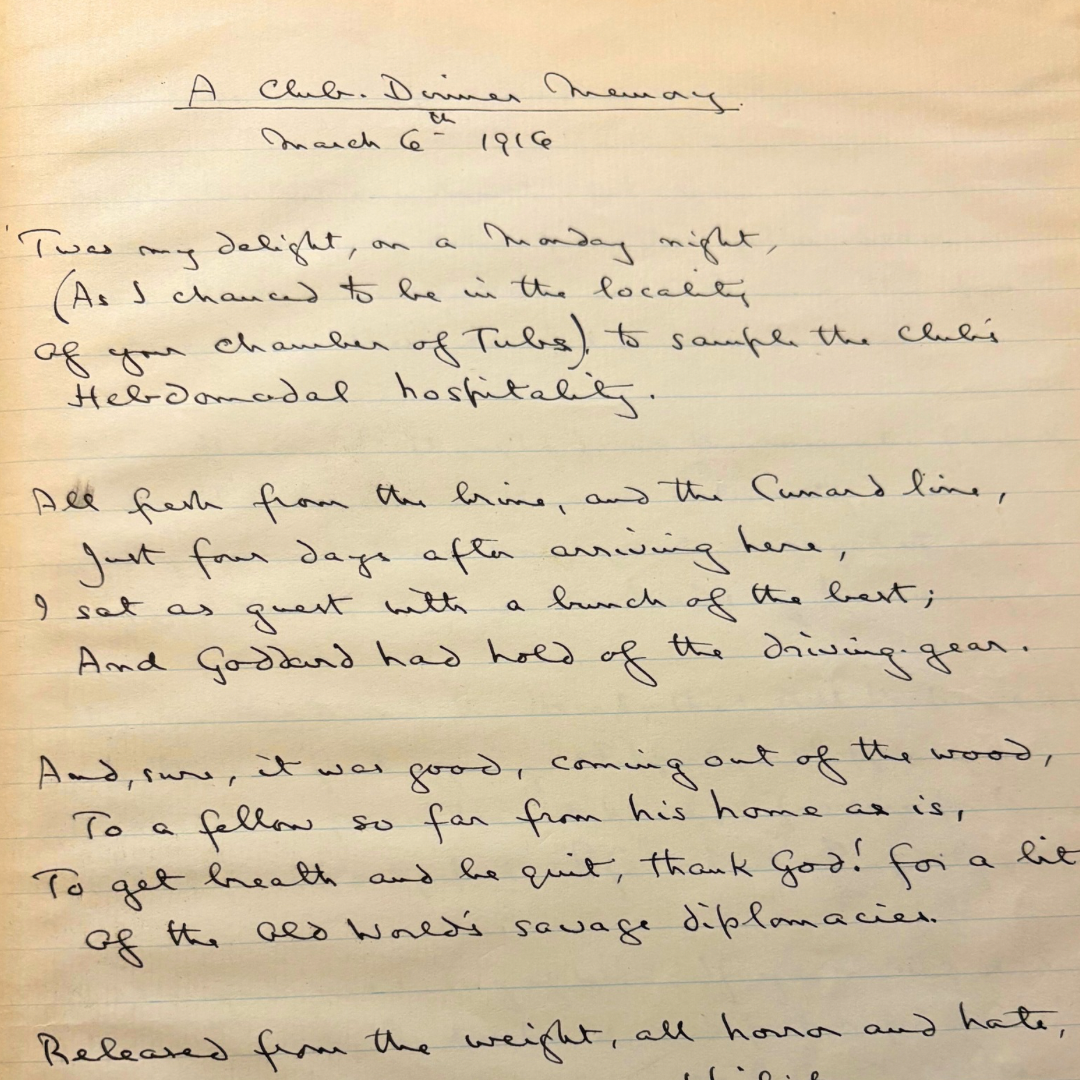 A Club-Dinner Memory.
March 6th 1916
'Twas my delight, on a Monday night,
(As I chanced to be in the locality
Of your chamber of Tubs), to sample the Club's
Hebdomadal hospitality.
All fresh from the brine, and the Cunard line,
Just four days after arriving here,
I sat as guest with a bunch of the best;
And Goddard had hold of the driving-gear.
And, sure, it was good, coming out of the wood,
To a fellow so far from his home as is,
To get breath and be quit, thank God! for a bit
Of the Old World's savage diplomacies.
Released from the weight, all horror and hate,